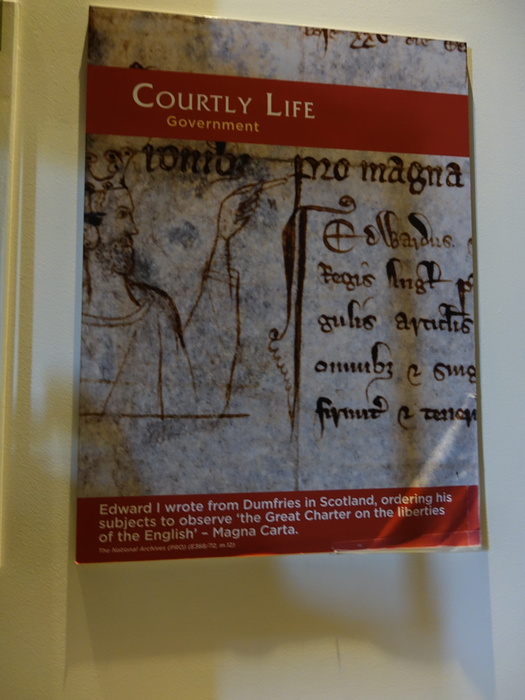 COURTLY LIFE
Government
pro magna
Edwardus
Regis Angl
gulis articlis
omnibz &
firmit & tener
Edward I wrote from Dumfries in Scotland, ordering his
subjects to observe 'the Great Charter on the liberties
of the English' – Magna Carta.
The National Archives (PRO) (E368/72, m.12)